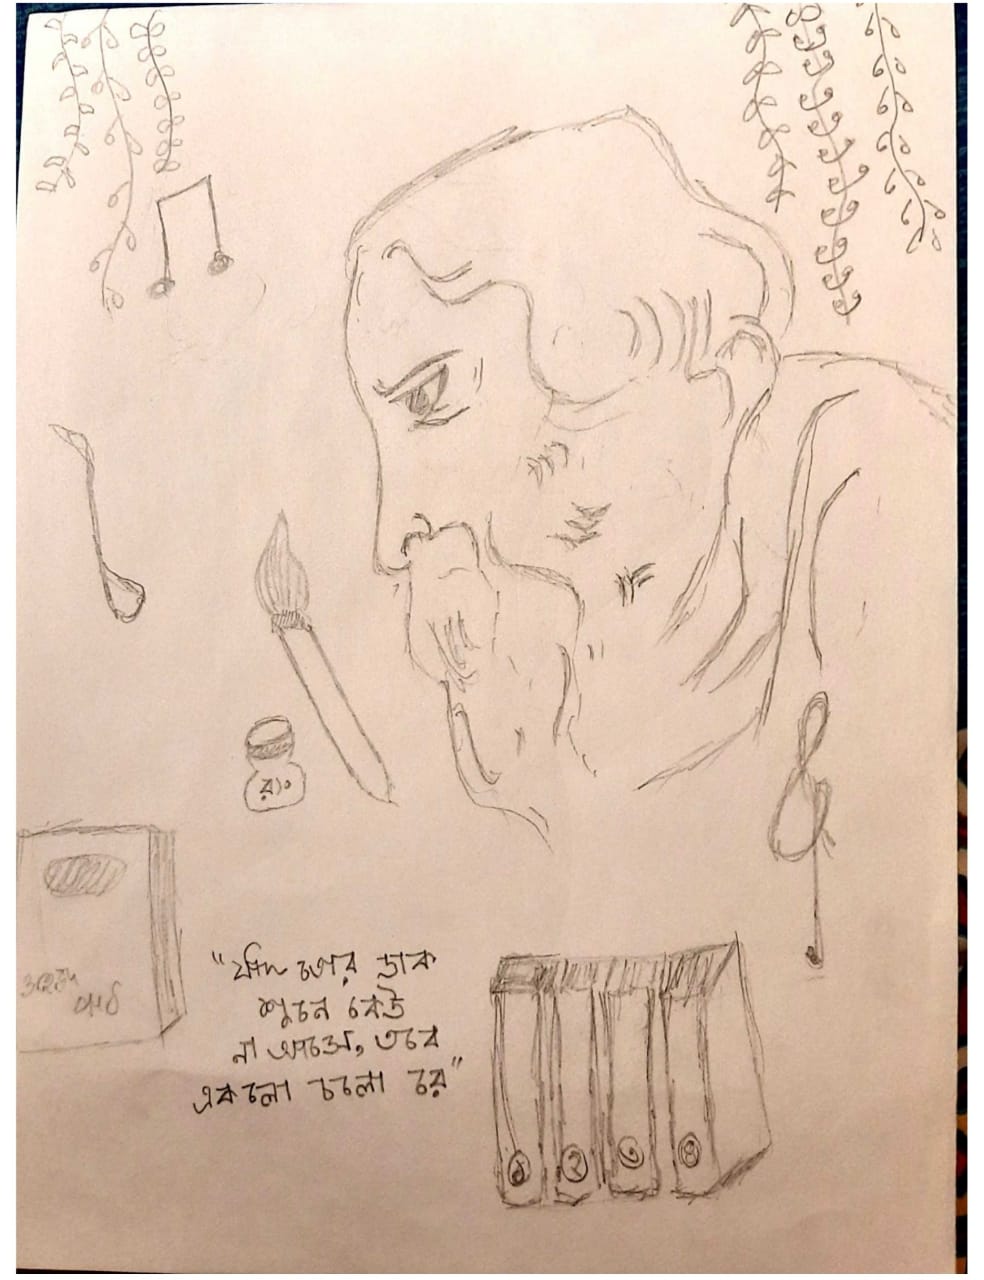 রং
সহজ
পাঠ
"যদি তোর ডাক
শুনে কেউ
না আসে, তবে
একলা চলো রে"
১ ২ ৩ ৪